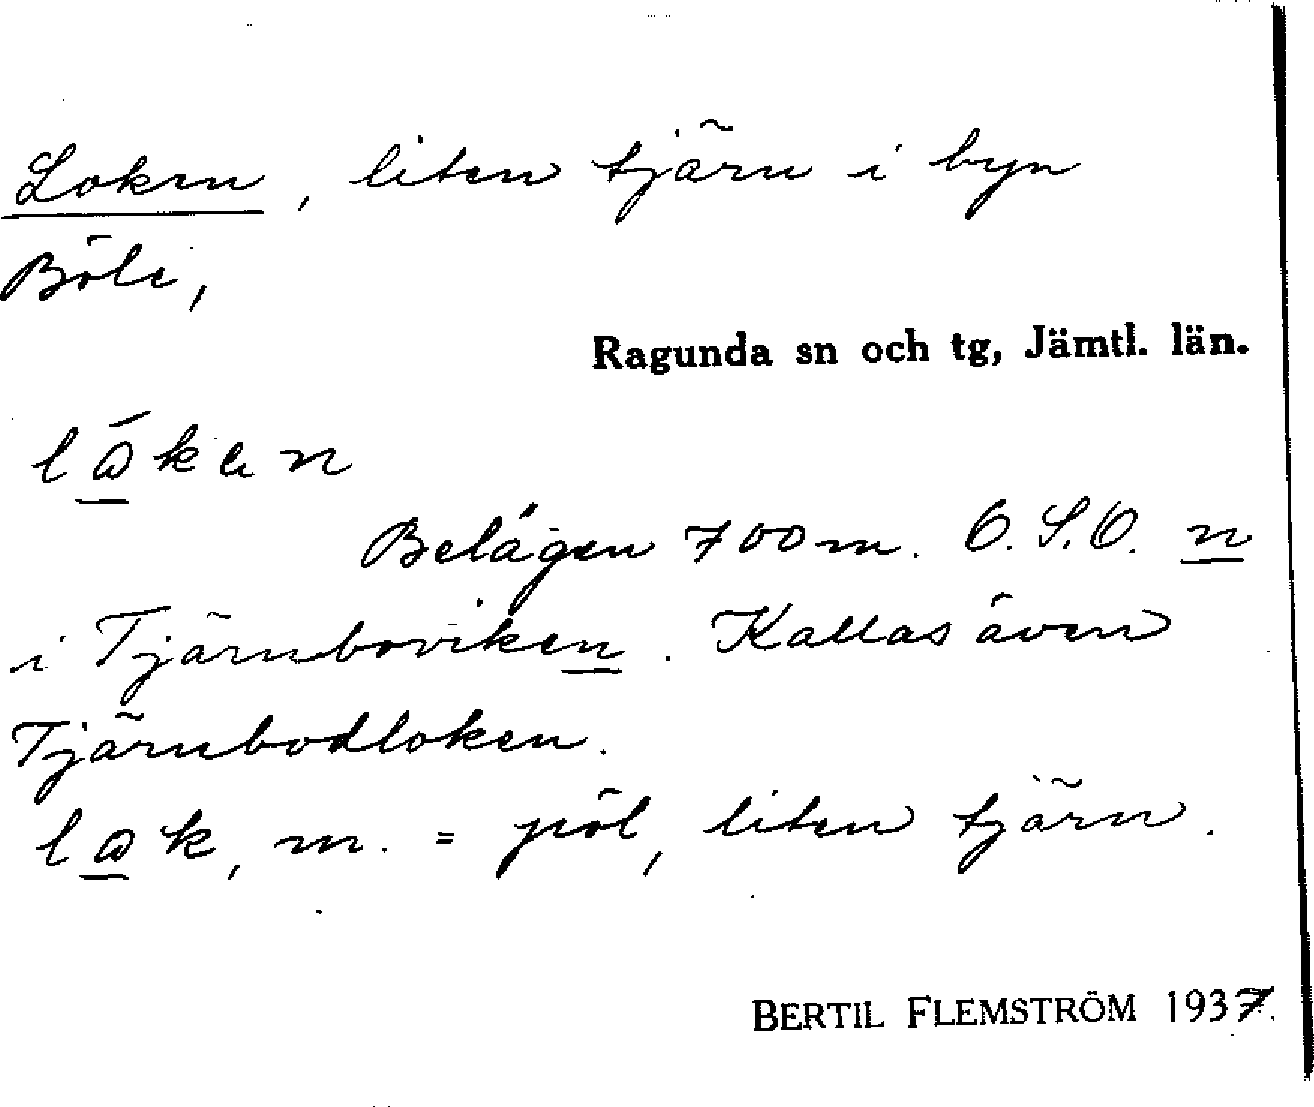 Loken, liten tjärn i byn
Böle,
Ragunda sn och tg, Jämtl. län.
Belägen 700 m. O.S.O. n
i Tjärnboviken. Kallas även
Tjärnbodloken.
m. = pöl, liten tjärn.
BERTIL FLEMSTRÖM 1937.